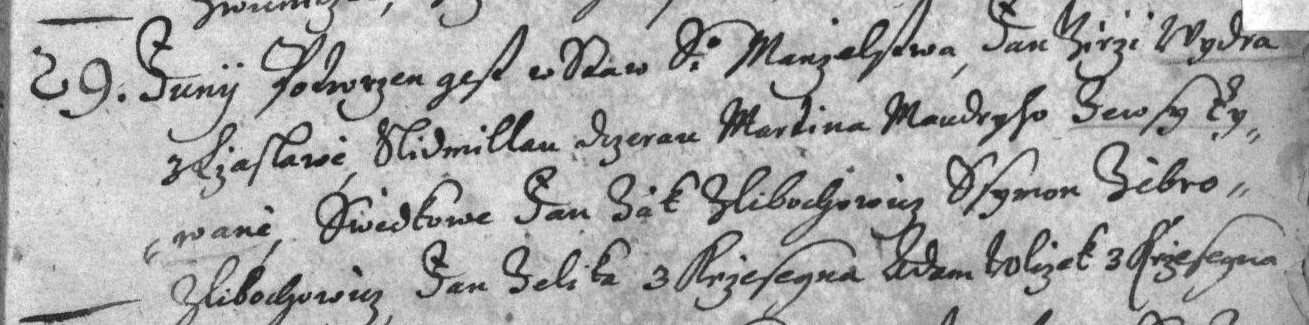 29. Junij Potwrzen gest w Staw S: Manzelstwa, Jan Jirzi Wydra
z Czaslawi, S Lidmillau dczerau Martina Maudryho Zewsy Ty„
„wani, Swiedkowe Jan Žák Zlibochowicz Ssymon Zibro„
Zlibochowicz, Jan Zelika z Krzesegna Adam Wlizek z Krzesegna